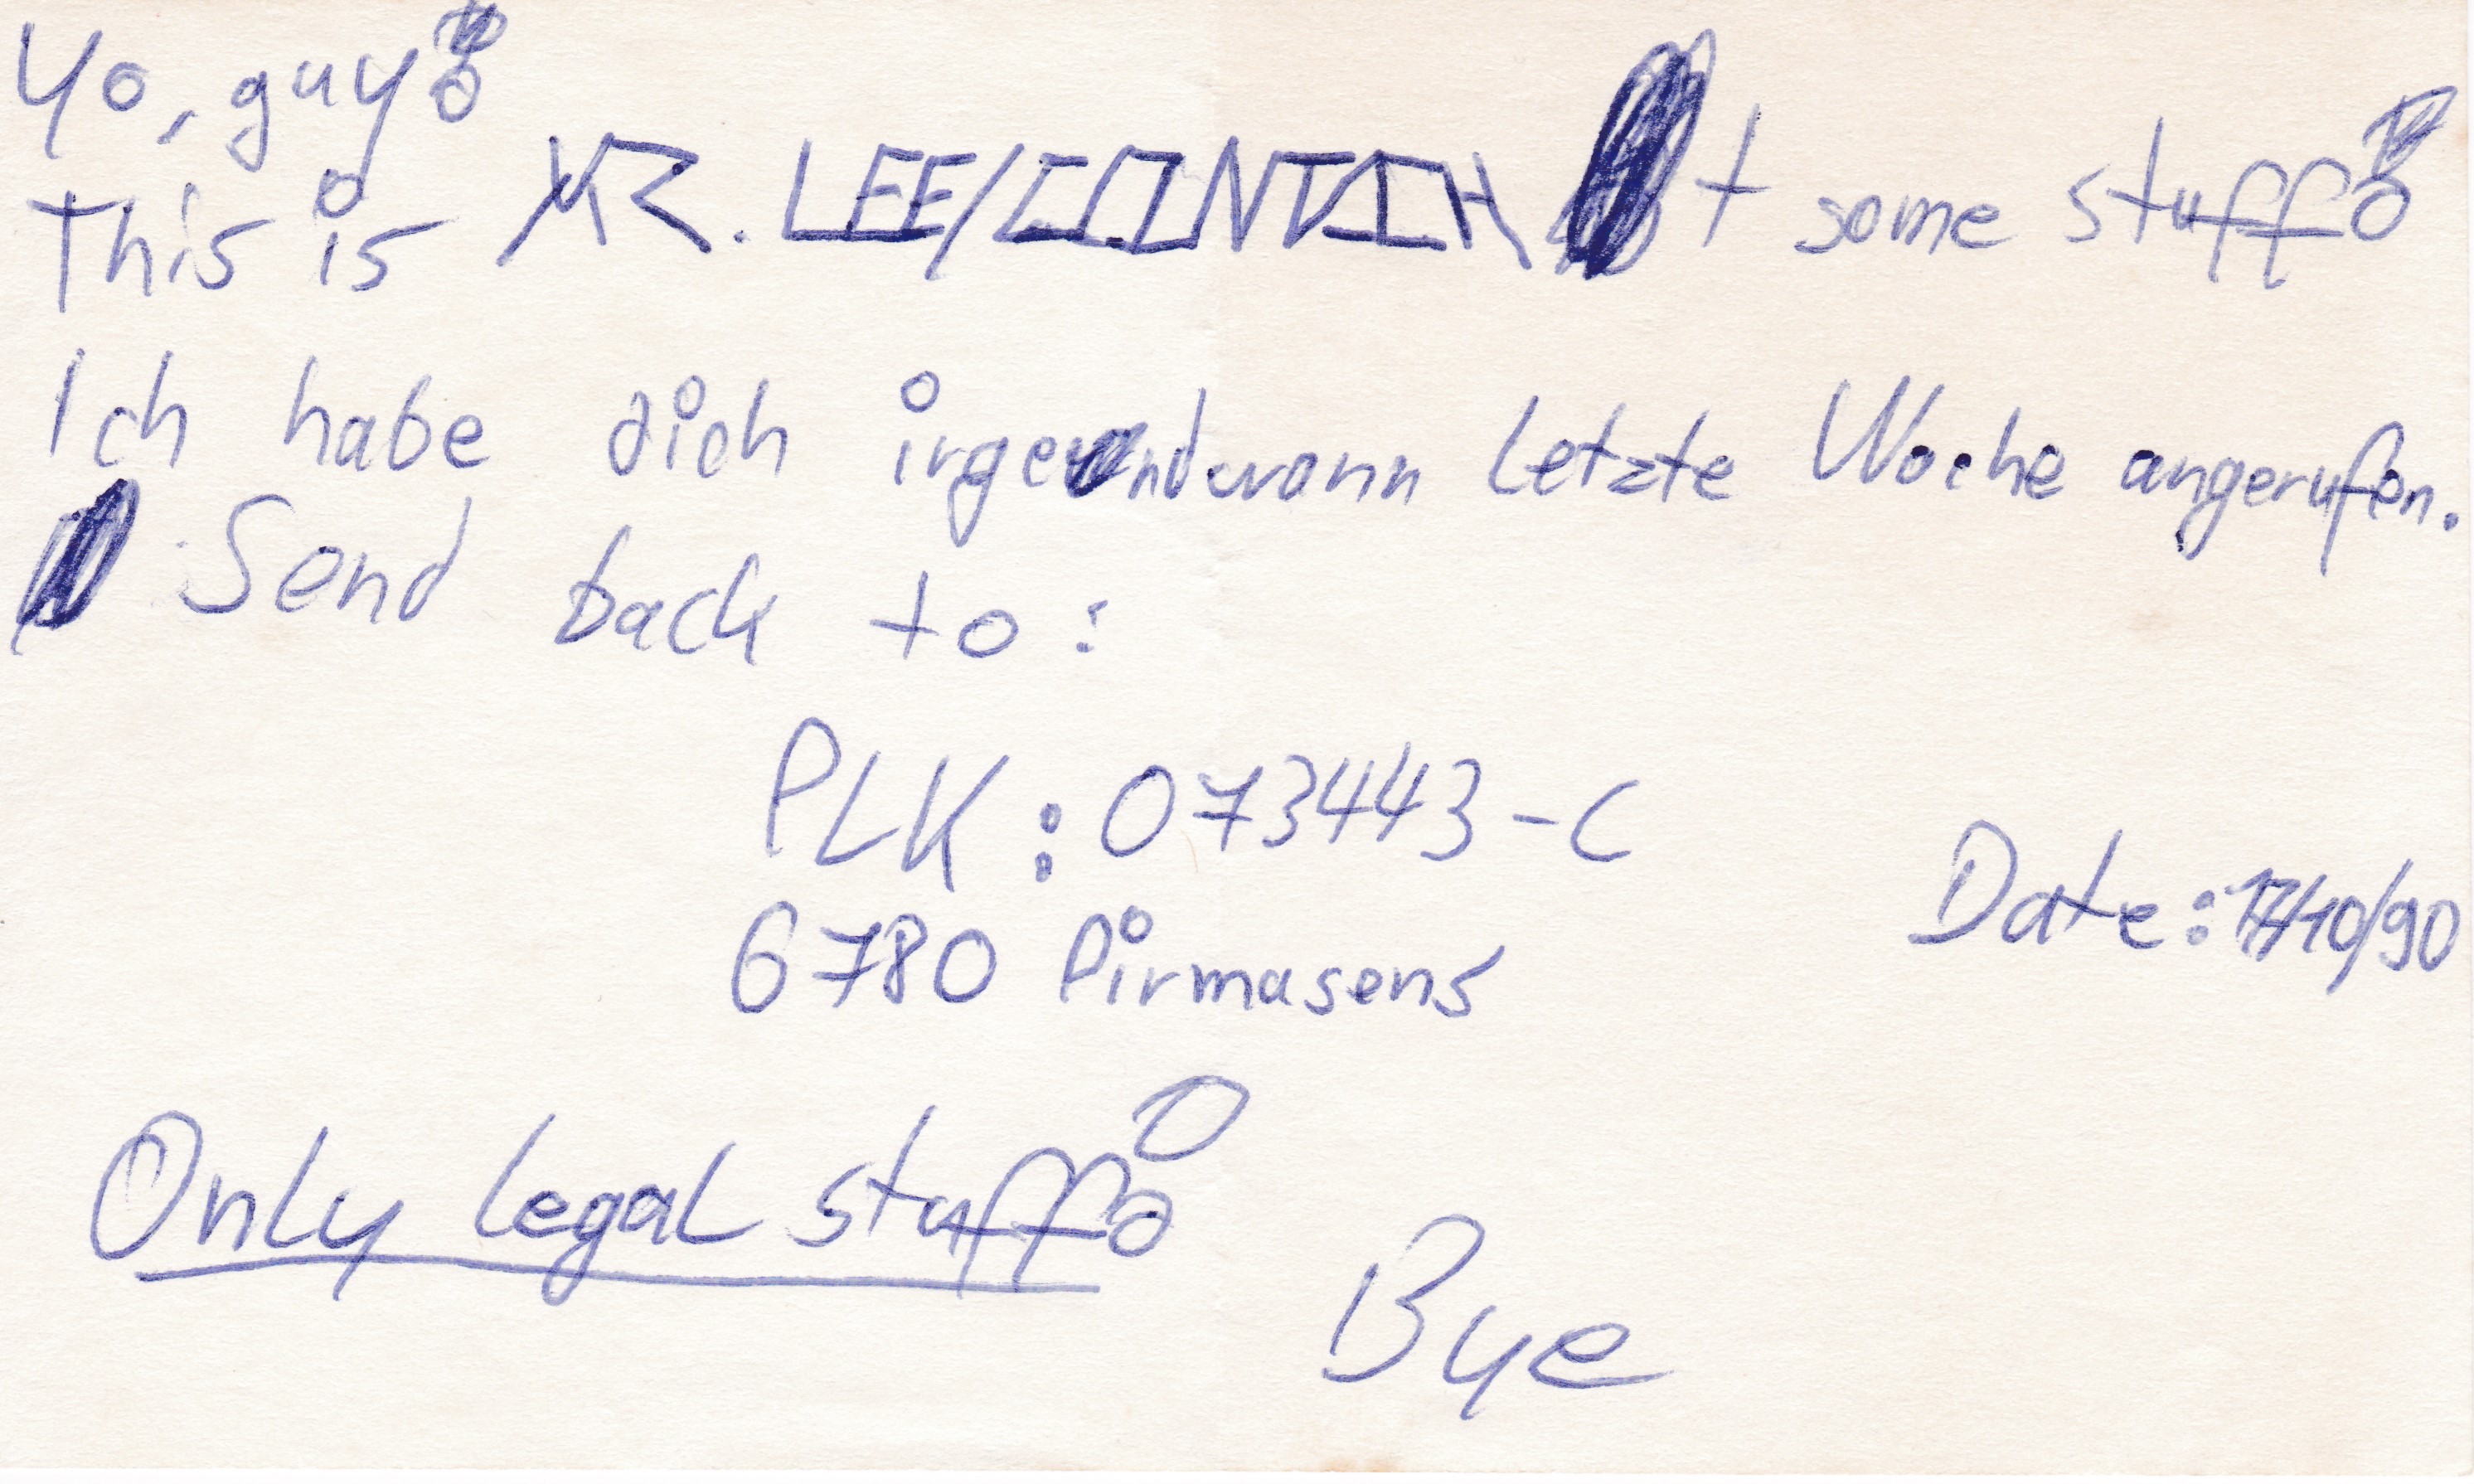 Yo, guy!
This is MR. LEE/ + some stuff!
Ich habe dich irgendwann letzte Woche angerufen.
Send back to:
PLK: 073443-C
6780 Pirmasens
Date: /10/90
Only legal stuff!
Bye